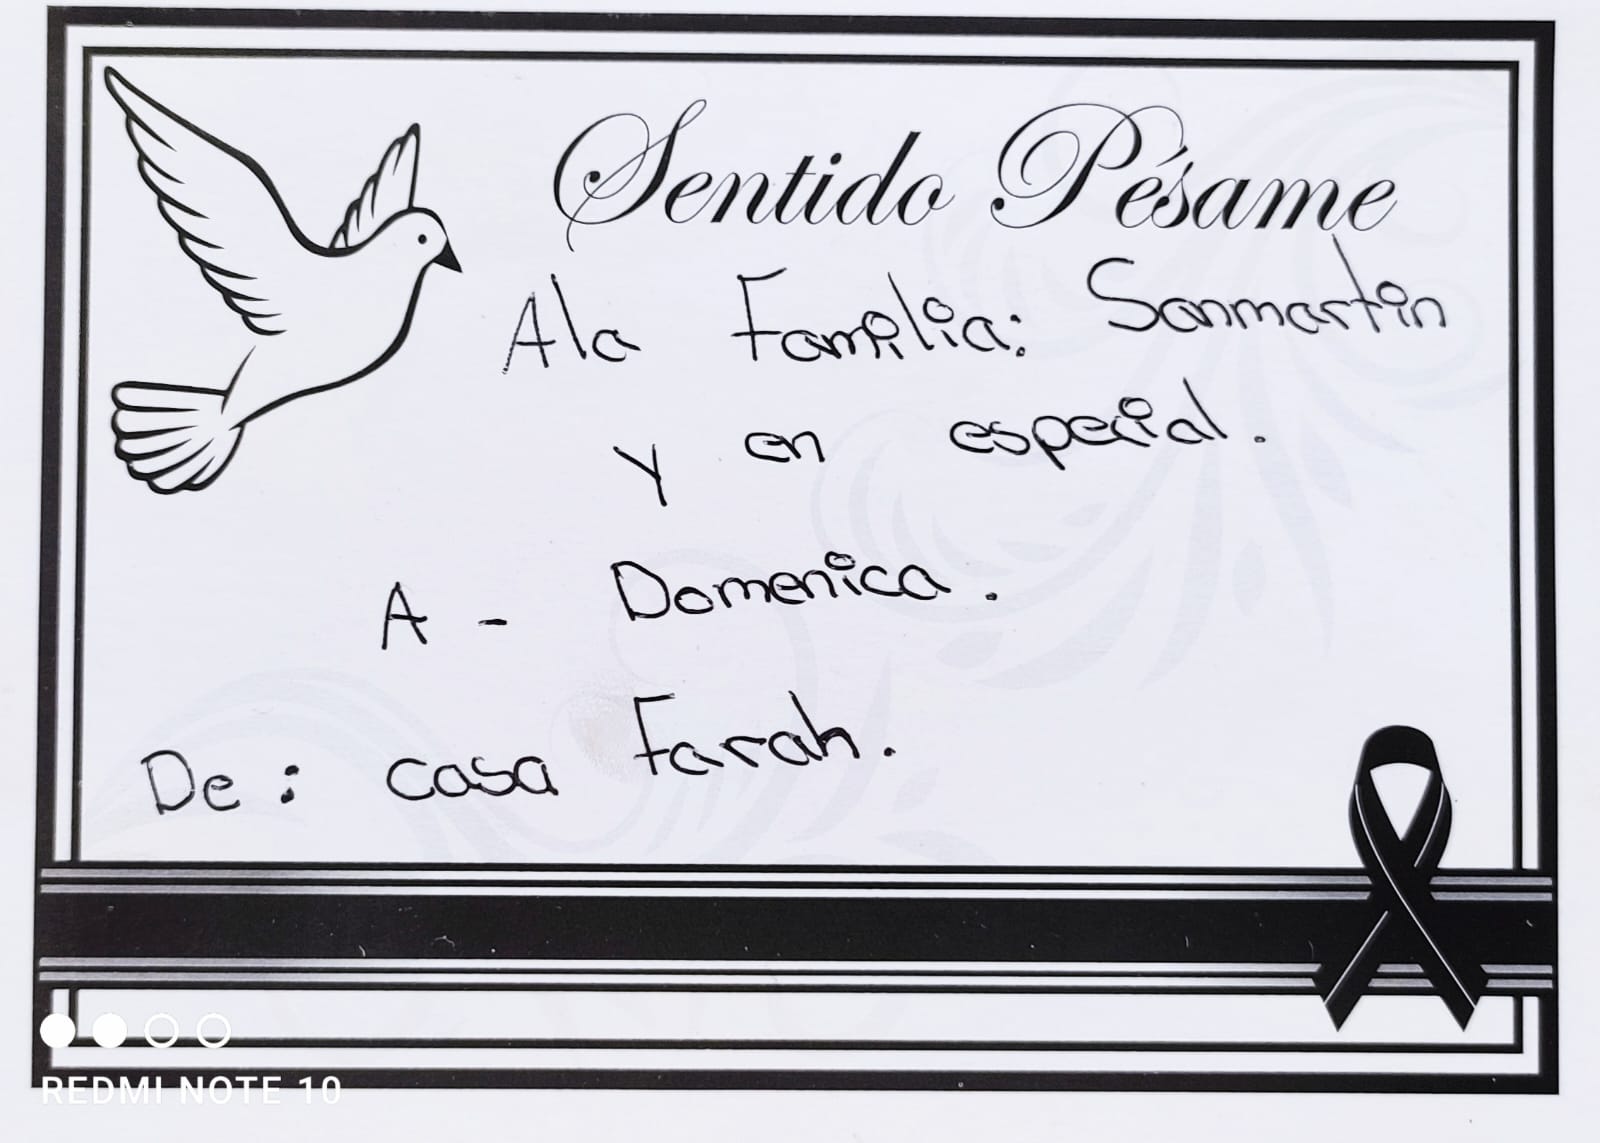 Sentido Pésame
Ala Familia: Sanmartin
y en especial.
A - Domenica.
De: casa Farah.
REDMI NOTE 10